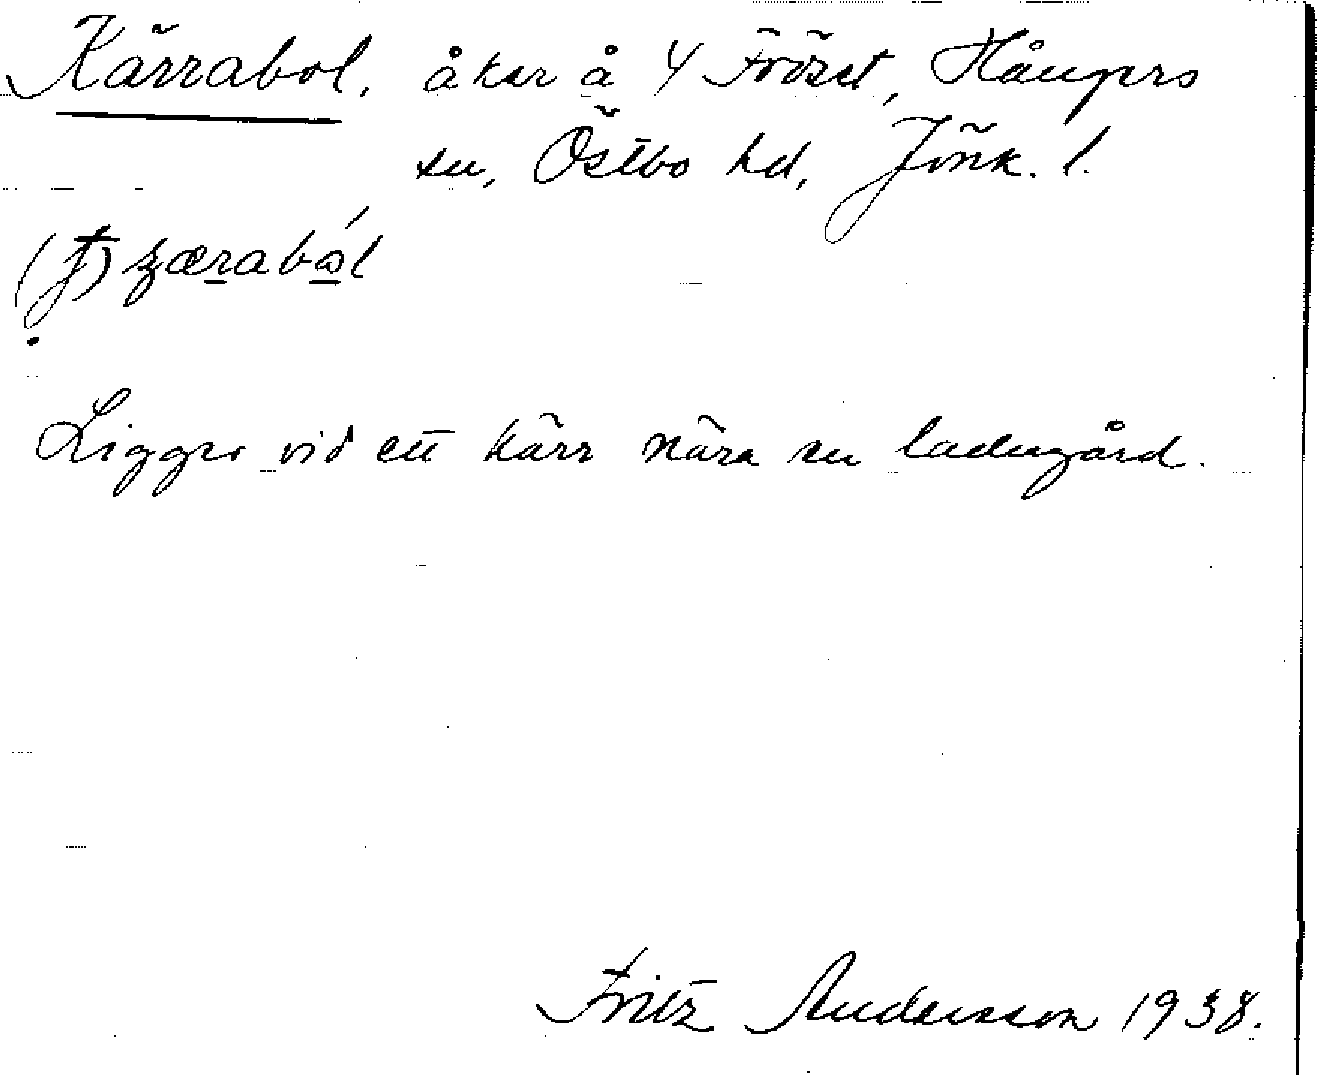 Kärrabol, åker å 4 Fröset, Hångers
sn, Östbo hd, Jönk. l.
Ligger vid ett kärr nära en ladugård.
Fritz Andersson 1938.